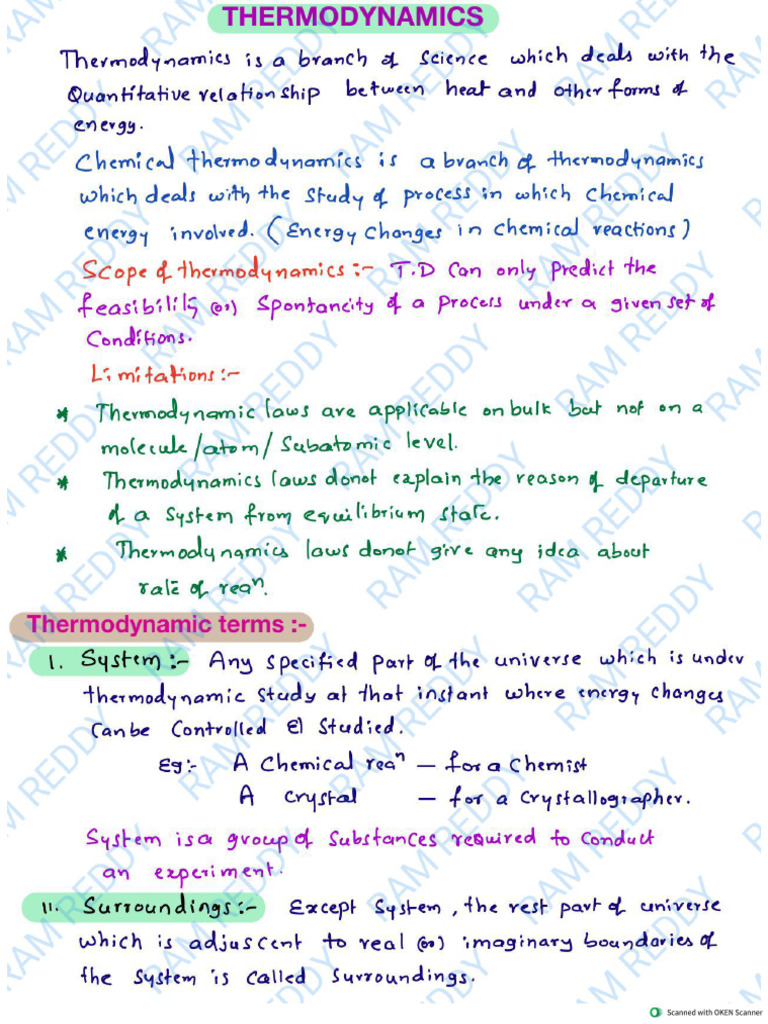 THERMODYNAMICS
Thermodynamics is a branch of science which deals with the
Quantitative relationship between heat and other forms of
energy.
Chemical thermodynamics is a branch of thermodynamics
which deals with the study of process in which chemical
energy involved. (Energy changes in chemical reactions)
Scope of thermodynamics :- T.D can only predict the
feasibility (or) spontaneity of a process under a given set of
conditions.
Limitations :-
* Thermodynamic laws are applicable on bulk but not on a
molecule/atom/subatomic level.
* Thermodynamics laws donot explain the reason of departure
of a system from equilibrium state.
* Thermodynamics laws donot give any idea about
rate of reaⁿ.
Thermodynamic terms :-
I. System :- Any specified part of the universe which is under
thermodynamic study at that instant where energy changes
can be controlled & studied.
Eg:- A chemical reaⁿ – for a chemist
A crystal – for a crystallographer.
System is a group of substances required to conduct
an experiment.
II. Surroundings :- Except system, the rest part of universe
which is adjuscent to real (or) imaginary boundaries of
the system is called surroundings.
RAM REDDY
Scanned with OKEN Scanner